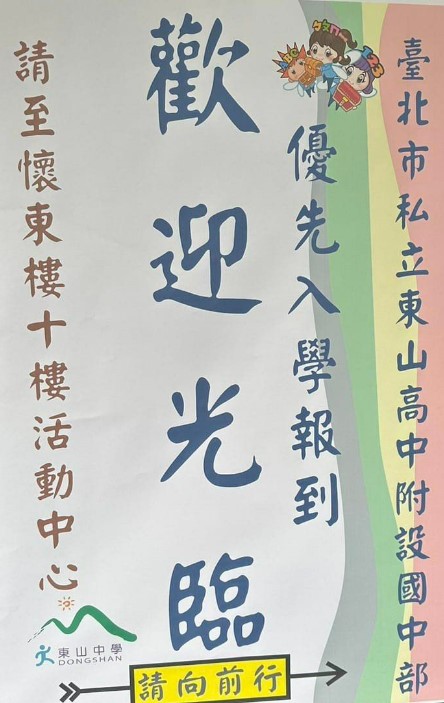 臺北市私立東山高中附設國中部
優先入學報到
歡迎光臨
請至懷東樓十樓活動中心
東山中學
DONGSHAN
請向前行